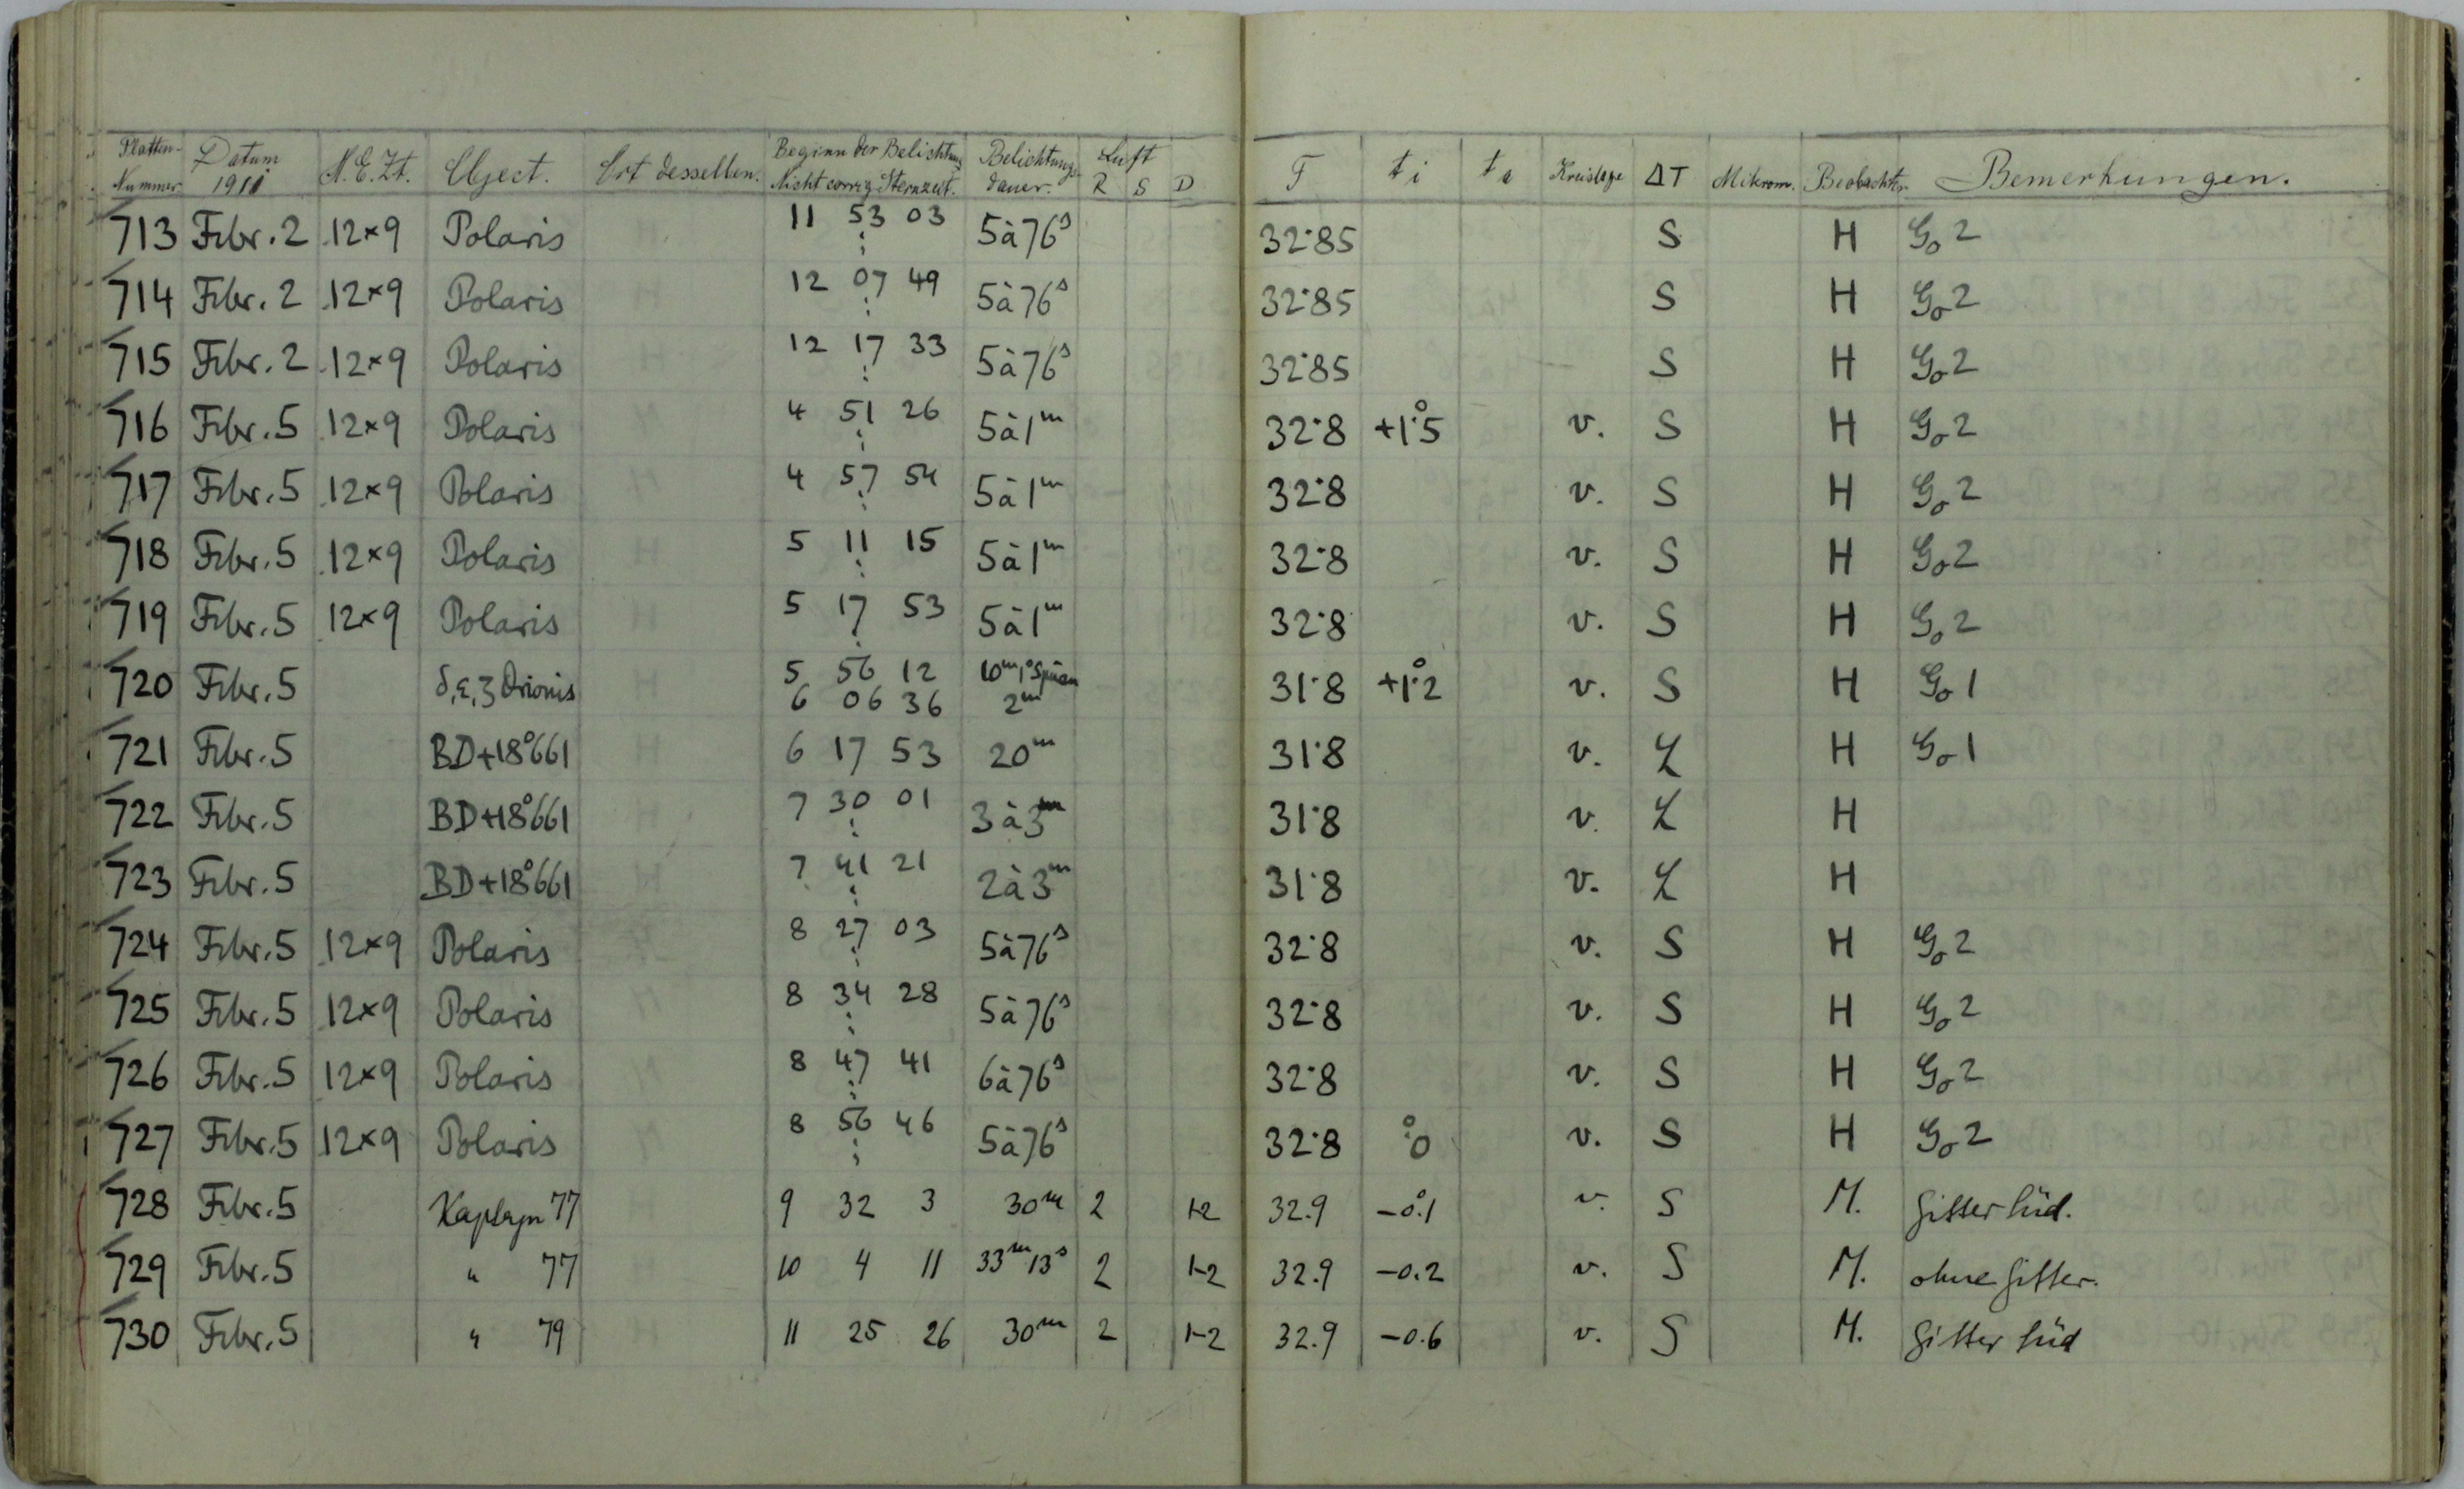 Platten-Nummer Datum 1911 M.E.Zt. Object. Ort desselben. Beginn der Belichtung Nicht corrig. Sternzeit. Belichtungsdauer. Luft R S D F ti ta Kreislage ΔT Mikrom. Beobachter. Bemerkungen.
713 Febr. 2 12×9 Polaris 11 53 03 5à76s 32·85 S H Go 2
714 Febr. 2 12×9 Polaris 12 07 49 5à76s 32·85 S H Go 2
715 Febr. 2 12×9 Polaris 12 17 33 5à76s 32·85 S H Go 2
716 Febr. 5 12×9 Polaris 4 51 26 5à1m 32·8 +1°·5 v. S H Go 2
717 Febr. 5 12×9 Polaris 4 57 54 5à1m 32·8 v. S H Go 2
718 Febr. 5 12×9 Polaris 5 11 15 5à1m 32·8 v. S H Go 2
719 Febr. 5 12×9 Polaris 5 17 53 5à1m 32·8 v. S H Go 2
720 Febr. 5 δ,ε,ζ Orionis 5 56 12 10m, 31·8 +1°·2 v. S H Go 1
6 06 36 2m
721 Febr. 5 BD+18°661 6 17 53 20m 31·8 v. L H Go 1
722 Febr. 5 BD+18°661 7 30 01 3à3m 31·8 v. L H
723 Febr. 5 BD+18°661 7 41 21 2à3m 31·8 v. L H
724 Febr. 5 12×9 Polaris 8 27 03 5à76s 32·8 v. S H Go 2
725 Febr. 5 12×9 Polaris 8 34 28 5à76s 32·8 v. S H Go 2
726 Febr. 5 12×9 Polaris 8 47 41 6à76s 32·8 v. S H Go 2
727 Febr. 5 12×9 Polaris 8 56 46 5à76s 32·8 °·0 v. S H Go 2
728 Febr. 5 Kapteyn 77 9 32 3 30m 2 1-2 32.9 -0°.1 v. S M. Gitter Süd.
729 Febr. 5 " 77 10 4 11 33m13s 2 1-2 32.9 -0.2 v. S M. ohne Gitter.
730 Febr. 5 " 79 11 25 26 30m 2 1-2 32.9 -0.6 v. S M. Gitter Süd